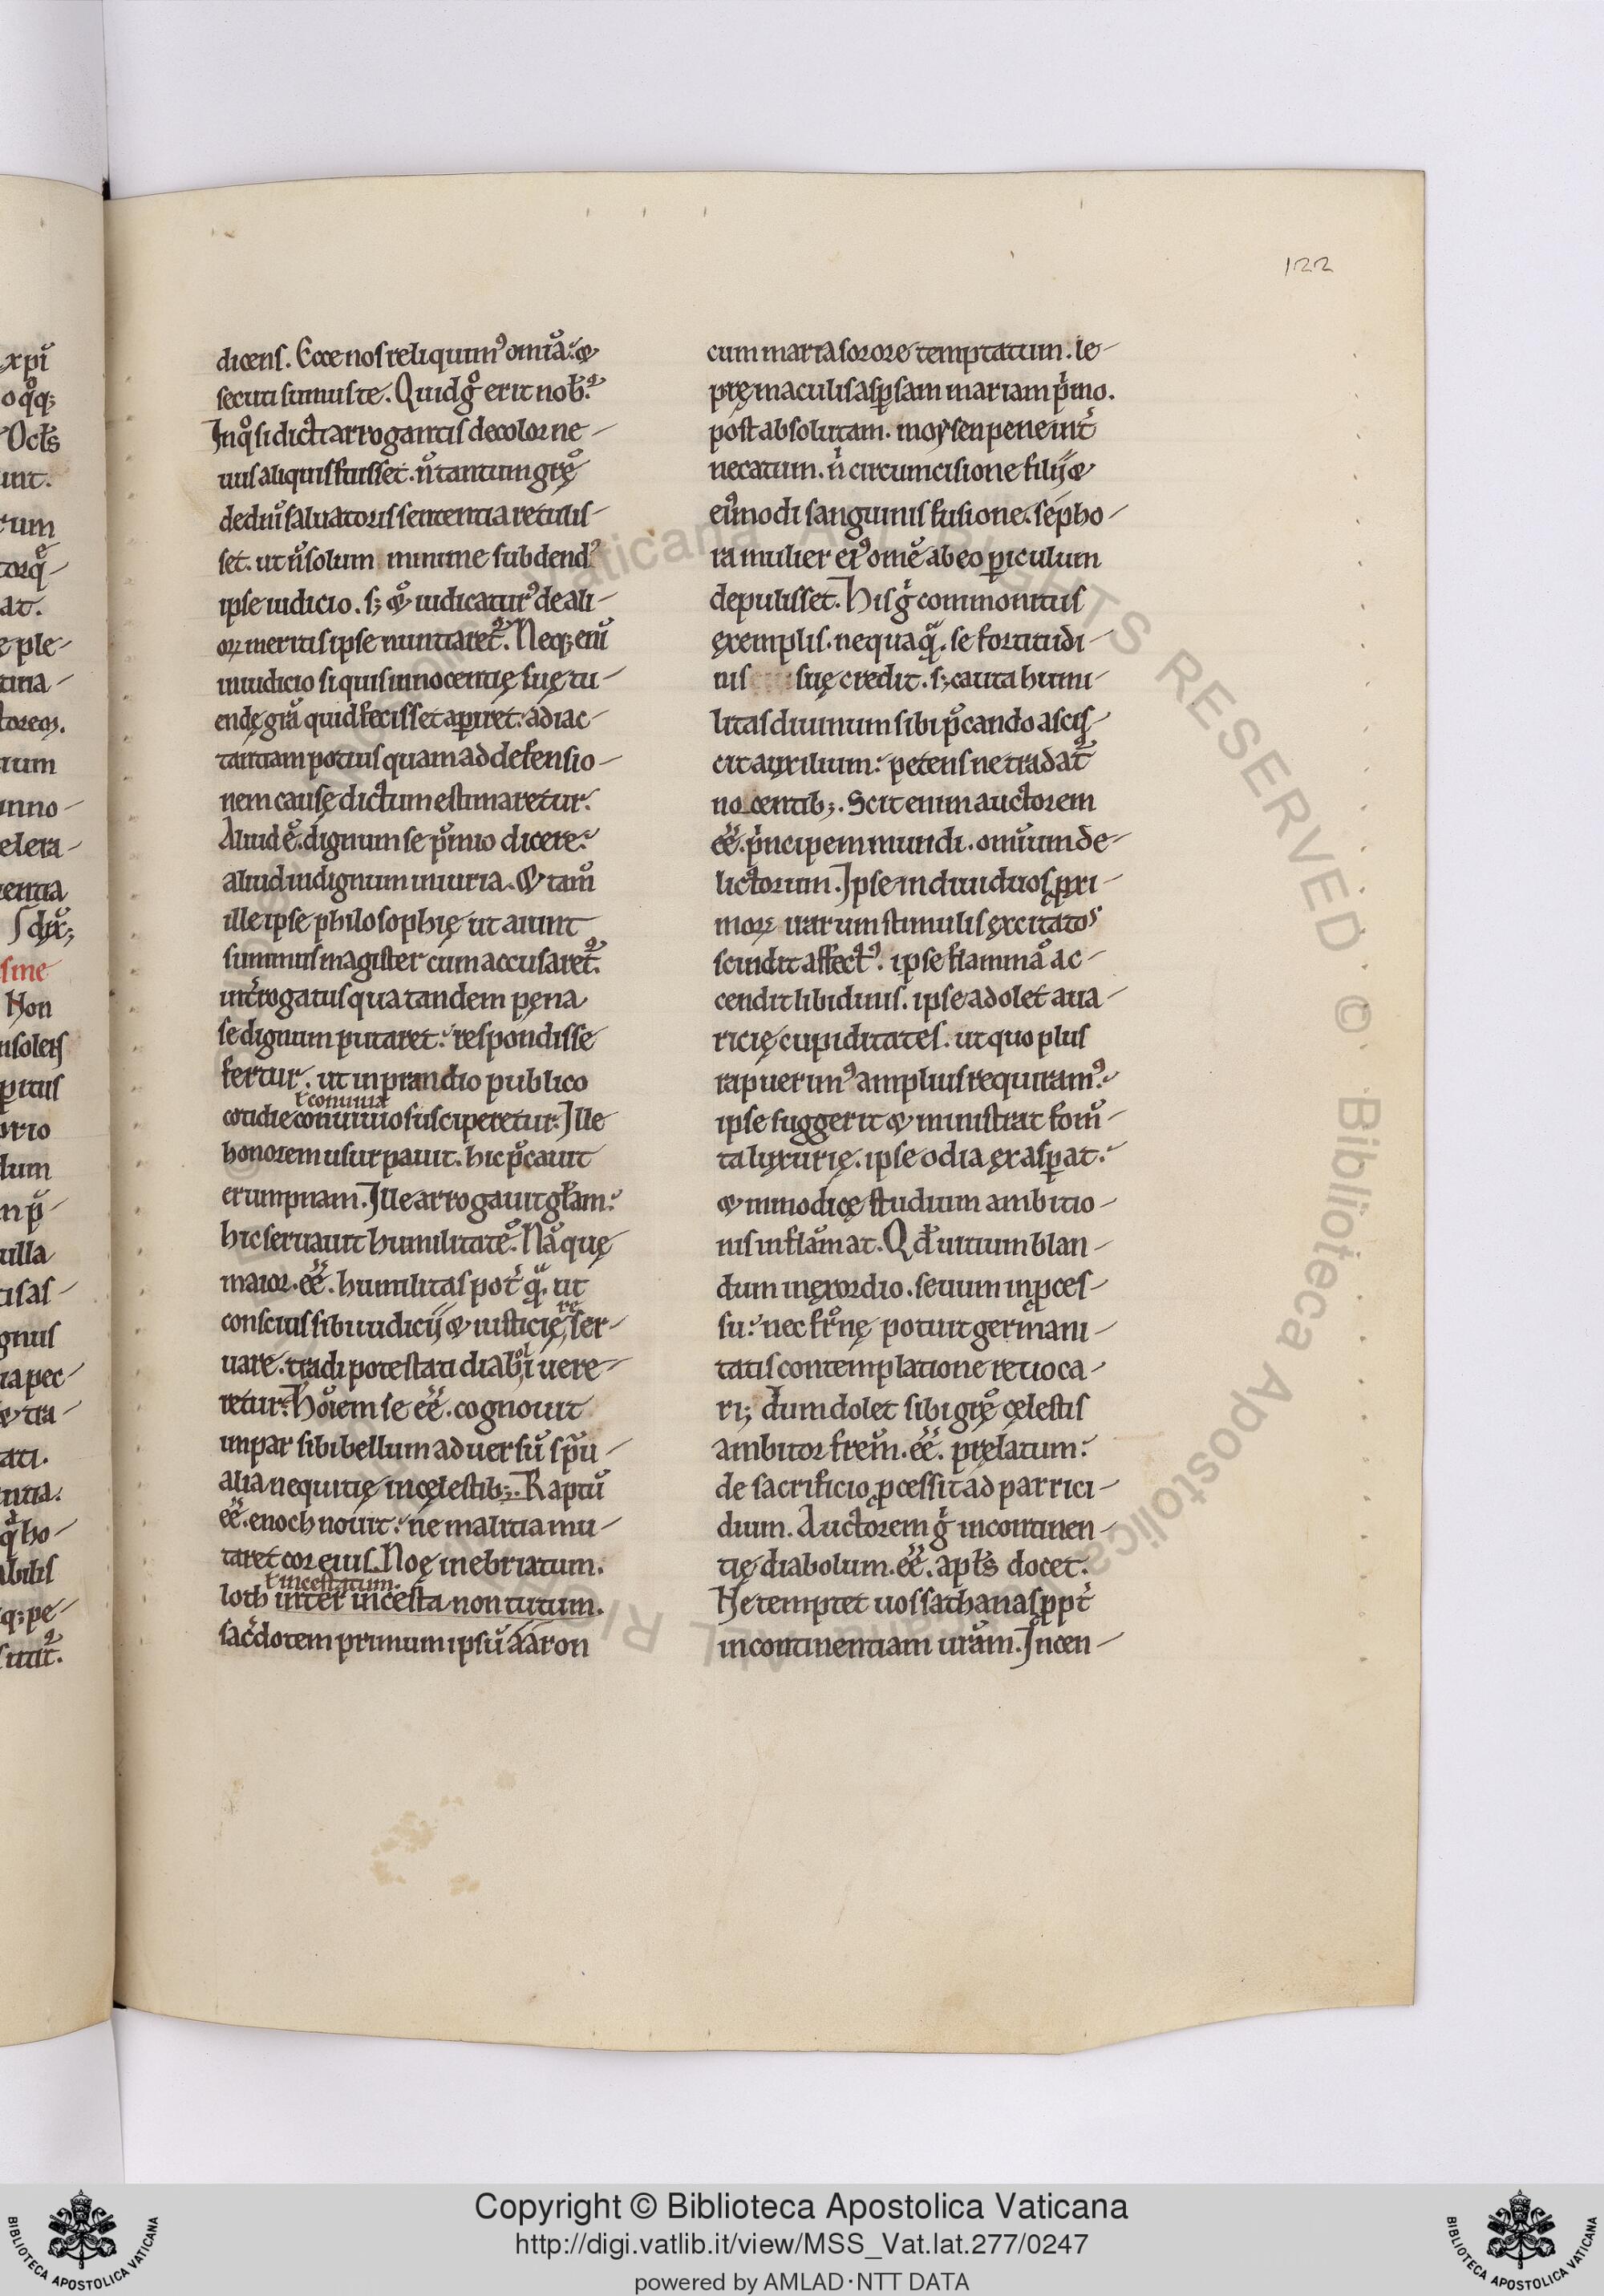 122
dicens. Ecce nos reliquimꝰ omīa. ⁊
secuti sumus te. Quid gͦ erit nob̅.
Jnqͦ si dicti arrogantis decolor ne-
uus aliquis fuisset. n̄ tantum grę̄
dediūi saluatoris sententia retulis-
set. ut n̄ solum minime subdendꝰ
ipse iudicio. s; ⁊ iudicaturꝰ de ali-
oꝝ meritis ipse nuntiaret᷑. Neq; enī
in iudicio si quis innocentię suę tu-
endę grā quid fecisset apiret. ad iac-
tantiam potius quam ad defensio-
nem causę dictum estimaretur.
Aliud ē. dignum se p̄mio dicere.
aliud indignum iniuria. ⁊ tam̄
ille ipse philosophię ut aiunt
summus magister cum accusaret᷑.
int̄rogatus qua tandem pęna
se dignum putaret. respondisse
fertur. ut in prandio publico
ł conuiua
cotidie conuiuio susciperetur. Jlle
honorem usurpauit. hic p̄cauit
erumpnam. Jlle arrogauit gl̄am.
hic seruauit humilitatē. Nā quę
maior. eē̄. humilitas pot̄ qͣ̄. ut
conscius sibi iudicij ⁊ iusticię ser-
re
uare. tradi potestati diabͦli uere-
retur. Hōiem se eē̄. cognouit
impar sibi bellum aduersū spū
alia nequitię in cęlestib;. Raptū
eē̄. enoch nouit. ne malitia mu-
taret cor eius. Noę inebriatum.
ł incestatum.
loth inter incesta non tutum.
sac̄dotem primum ipsū aaron
cum maria sorore temptatum. le-
prę maculis aspsam mariam p̄mo.
post absolutam. moysen pene int̄
necatum. n̄ circumcisione filij ⁊
eiꝰmodi sanguinis fusione. sepho-
ra mulier eiꝰ omē ab eo piculum
depulisset. His gͦ commonitus
ęxemplis. nequaqͣ̄. se fortitudi-
nis suę credit. s; cauta humi-
litas diuinum sibi p̄cando ascis-
cit auxilium. petens ne tradat᷑
nocentib;. Scit enim auctorem
eē̄. p̄ncipem mundi. omīum de-
lictorum. Jpse indiuiduos pxi-
moꝝ uarum stimulis ęxcitatos
scindit affectꝰ. ipse flammā ac-
cendit libidinis. ipse adolet aua-
ricię cupiditates. ut quo plus
rapuerimꝰ amplius requiramꝰ.
ipse suggerit ⁊ ministrat fom̄-
ta luxurię. ipse odia ęxaspat.
⁊ inmodicę studium ambitio-
nis inflāmat. Qd̄ uitium blan-
dum in ęxordio. seuum in pces-
su. nec fr̄nę potuit germani-
tatis contemplatione reuoca-
ri; dum dolet sibi grę̄ cęlestis
ambitor frem̄. eē̄. pręlatum.
de sacrificio pcessit ad parrici-
dium. Auctorem gͦ incontinen-
tię diabolum. eē̄. apl̄s docet.
Ne temptet uos sathanas ppt̄
incontinentiam uram̄. Jncen-
Copyright © Biblioteca Apostolica Vaticana
http://digi.vatlib.it/view/MSS_Vat.lat.277/0247
powered by AMLAD·NTT DATA